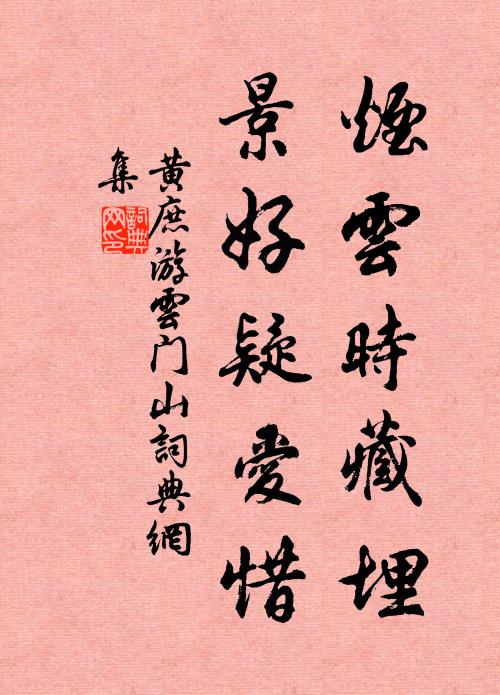 煙雲時藏埋
景好疑愛惜
黃庶游雲门山詞典網
集
詞典
网印